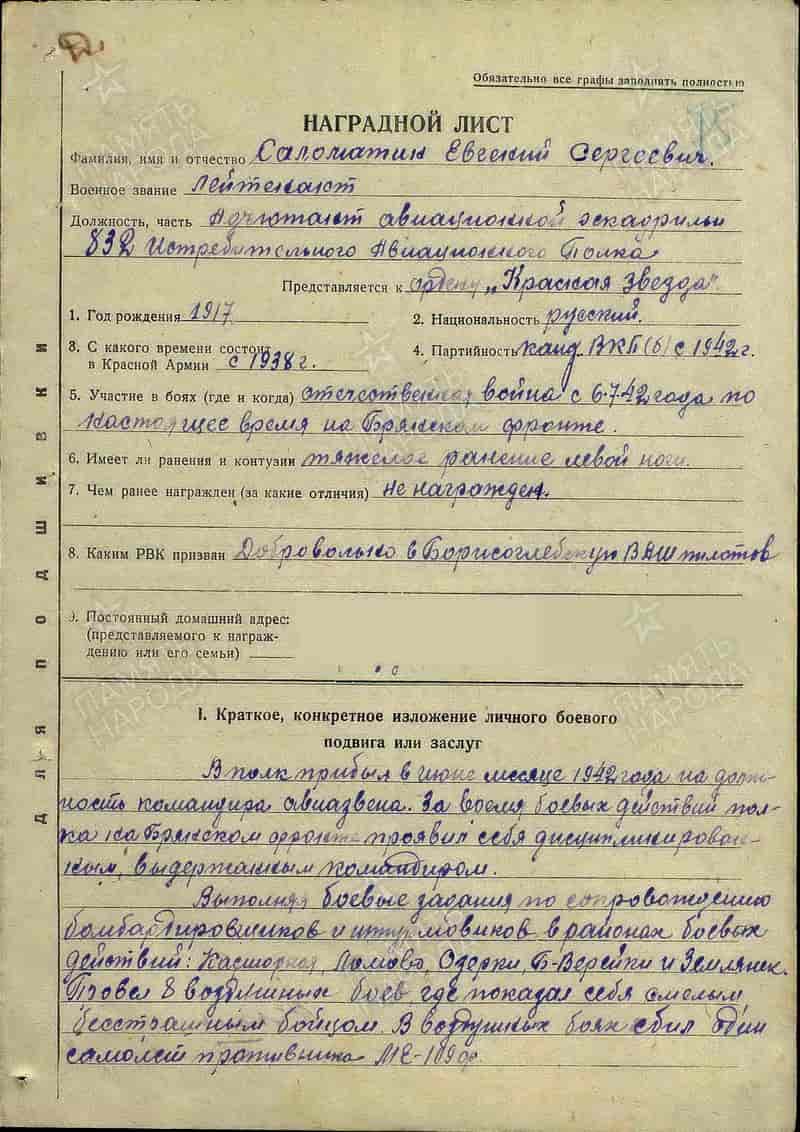 Обязательно все графы заполнять полностью
НАГРАДНОЙ ЛИСТ
Фамилия, имя и отчество Саломатин Евгений Сергеевич.
Военное звание Лейтенант
Должность, часть Адъютант авиационной эскадрильи
832 Истребительного Авиационного Полка
Представляется к ордену „Красная звезда"
1. Год рождения 1917
2. Национальность русский.
3. С какого времени состоит
в Красной Армии с 1938 г.
4. Партийность канд. ВКП(б) с 1942 г.
5. Участие в боях (где и когда) отечественная война с 6.7.42 года по
настоящее время на Брянском фронте.
6. Имеет ли ранения и контузии тяжелое ранение левой ноги.
7. Чем ранее награжден (за какие отличия) не награжден.
8. Каким РВК призван Добровольно в Борисоглебскую ВАШ пилотов
9. Постоянный домашний адрес:
(представляемого к награж-
дению или его семьи)
I. Краткое, конкретное изложение личного боевого
подвига или заслуг
В полк прибыл в июне месяце 1942 года на долж-
ность командира авиазвена. За время боевых действий пол-
ка на Брянском фронте проявил себя дисциплинирован-
ным, выдержанным командиром.
Выполняя боевые задания по сопровождению
бомбардировщиков и штурмовиков в районах боевых
действий: Касторная, Ломово, Озерки, Б-Верейки и Землянск.
Провел 8 воздушных боев, где показал себя смелым,
бесстрашным бойцом. В воздушных боях сбил один
самолет противника МЕ-109ф.
ДЛЯ ПОДШИВКИ
ПАМЯТЬ
НАРОДА
ПАМЯТЬ
НАРОДА
ПАМЯТЬ
НАРОДА
ПАМЯТЬ
НАРОДА